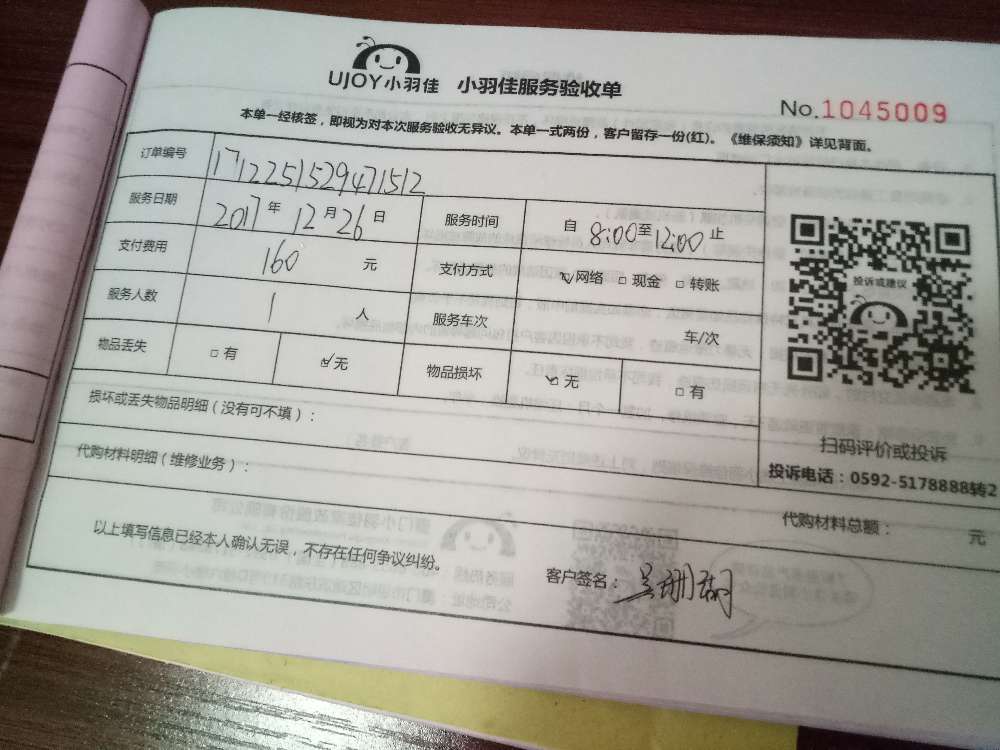 UJOY小羽佳 小羽佳服务验收单
No.1045009
本单一经核签，即视为对本次服务验收无异议。本单一式两份，客户留存一份(红)。《维保须知》详见背面。
订单编号 1712251529471512
服务日期 2017年12月26日 服务时间 自8:00至12:00止
支付费用 160元 支付方式 网络 现金 转账
服务人数 1人 服务车次 车/次
物品丢失 有 无 物品损坏 无 有
投诉或建议
扫码评价或投诉
投诉电话：0592-5178888转2
损坏或丢失物品明细（没有可不填）：
代购材料明细（维修业务）：
代购材料总额： 元
以上填写信息已经本人确认无误，不存在任何争议纠纷。
客户签名：吴珊瑚